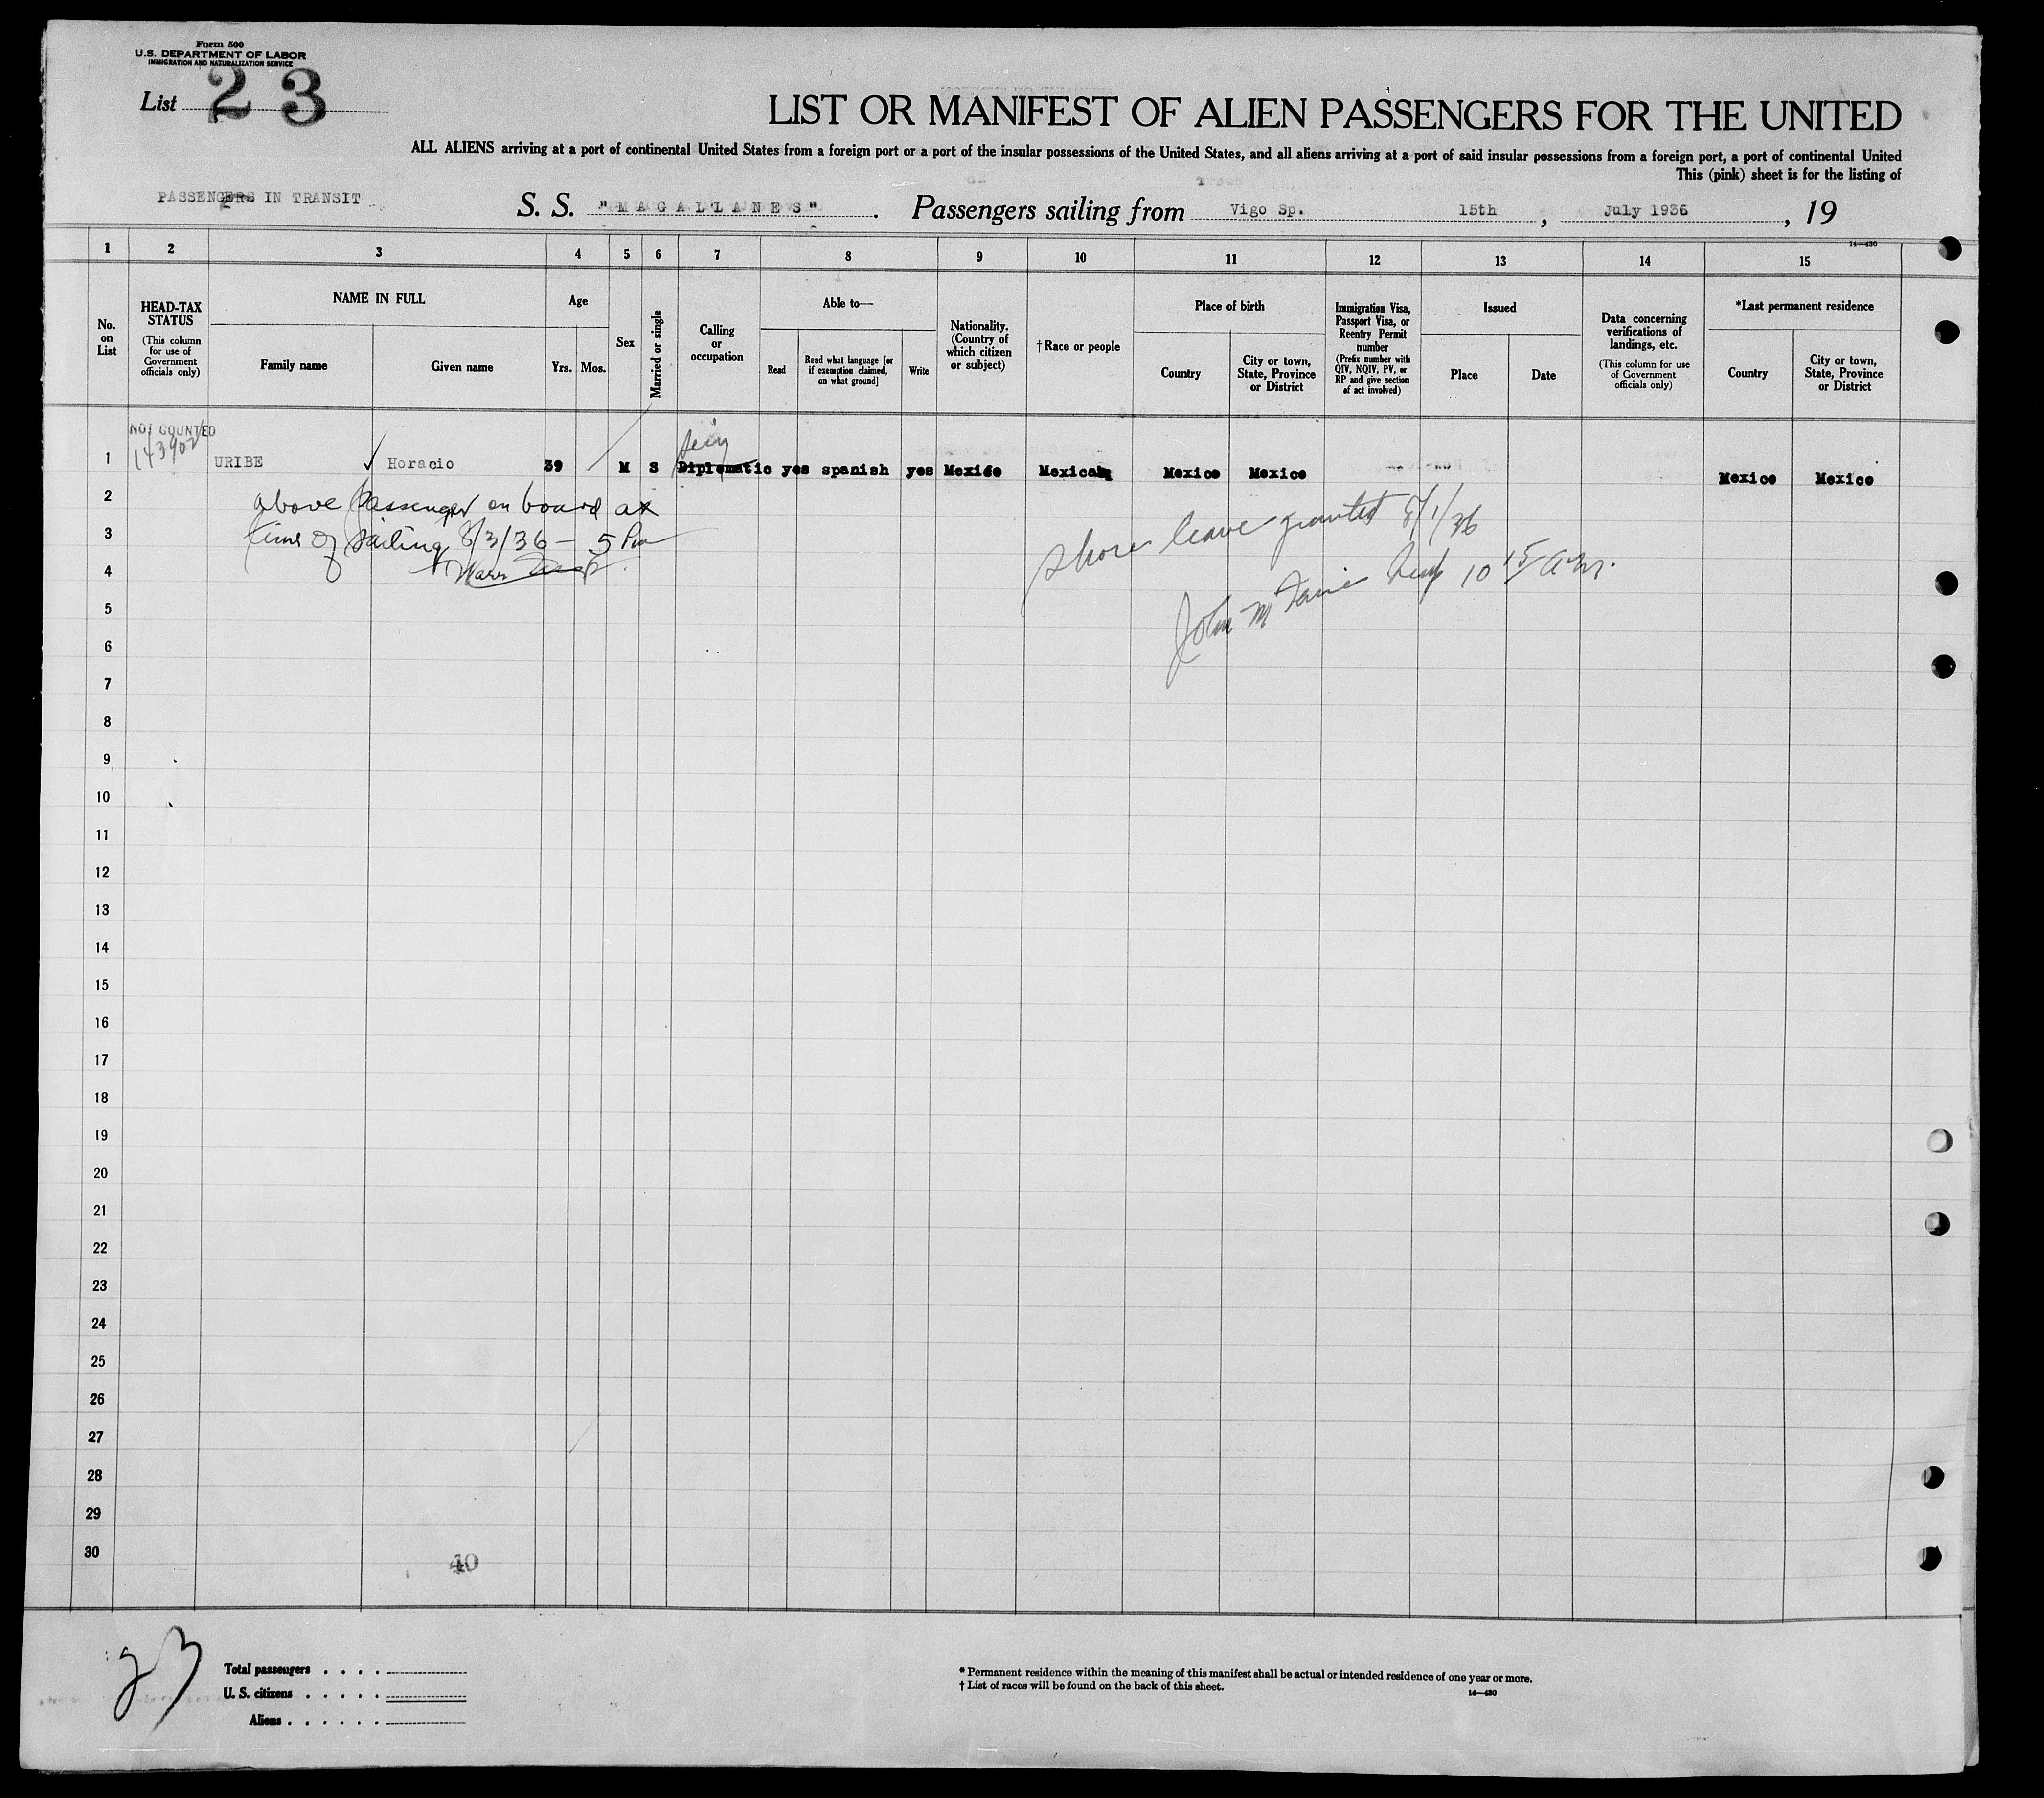 Form 500
U.S. DEPARTMENT OF LABOR
IMMIGRATION AND NATURALIZATION SERVICE
List 23
LIST OR MANIFEST OF ALIEN PASSENGERS FOR THE UNITED
ALL ALIENS arriving at a port of continental United States from a foreign port or a port of the insular possessions of the United States, and all aliens arriving at a port of said insular possessions from a foreign port, a port of continental United
This (pink) sheet is for the listing of
PASSENGERS IN TRANSIT
S. S. "MAGALLANES". Passengers sailing from Vigo Sp. 15th, July 1936, 19
14—430
1 2 3 4 5 6 7 8 9 10 11 12 13 14 15
No. on List
HEAD-TAX STATUS
(This column for use of Government officials only)
NAME IN FULL
Family name
Given name
Age
Yrs. Mos.
Sex
Married or single
Calling or occupation
Able to—
Read
Read what language [or if exemption claimed, on what ground]
Write
Nationality. (Country of which citizen or subject)
†Race or people
Place of birth
Country
City or town, State, Province or District
Immigration Visa, Passport Visa, or Reentry Permit number
(Prefix number with QIV, NQIV, PV, or RP and give section of act involved)
Issued
Place
Date
Data concerning verifications of landings, etc.
(This column for use of Government officials only)
*Last permanent residence
Country
City or town, State, Province or District
NOT COUNTED
143902
1 URIBE Horacio 39 M S Diplomatic yes spanish yes Mexico Mexican Mexico Mexico Mexico Mexico
2 above passenger on board at
3 time of sailing 8/3/36 — 5 Pm
shore leave granted 8/1/36
4
John M 10 15 a.m.
5
6
7
8
9
10
11
12
13
14
15
16
17
18
19
20
21
22
23
24
25
26
27
28
29
30
40
23
Total passengers . . . .
U. S. citizens . . . . .
Aliens . . . . . .
* Permanent residence within the meaning of this manifest shall be actual or intended residence of one year or more.
† List of races will be found on the back of this sheet.
14—430